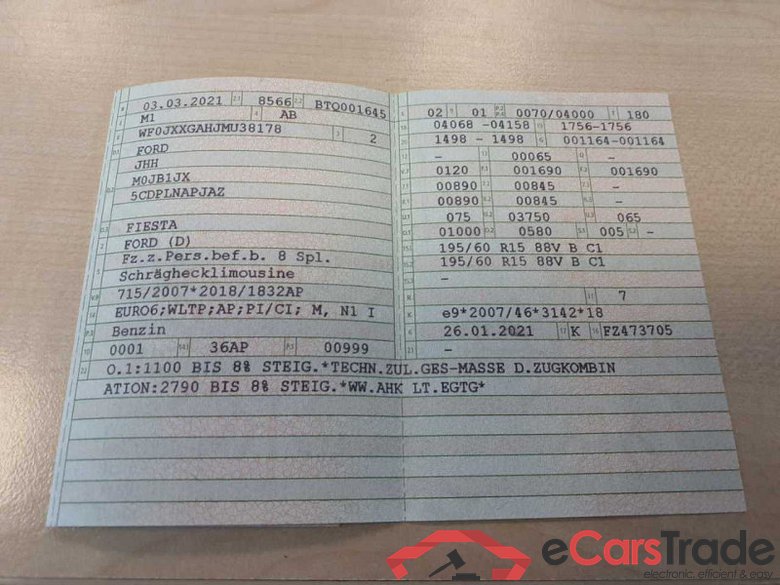 B 03.03.2021 2.1 8566 2.2 BTQ001645
J M1 4 AB
E WF0JXXGAHJMU38178 3 2
D.1 FORD
JHH
D.2 M0JB1JX
5CDPLNAPJAZ
D.3 FIESTA
2 FORD (D)
5 Fz.z.Pers.bef.b. 8 Spl.
Schräghecklimousine
V.9 715/2007*2018/1832AP
14 EURO6;WLTP;AP;PI/CI; M, N1 I
P.3 Benzin
10 0001 14.1 36AP P.1 00999
L 02 9 01 P.2 P.4 0070/04000 T 180
18 04068 -04158 19 1756-1756
20 1498 - 1498 G 001164-001164
12 - 13 00065 Q -
V.7 0120 F.1 001690 F.2 001690
7.1 00890 7.2 00845 7.3 -
8.1 00890 8.2 00845 8.3 -
U.1 075 U.2 03750 U.3 065
O.1 01000 O.2 0580 S.1 005 S.2 -
15.1 195/60 R15 88V B C1
15.2 195/60 R15 88V B C1
15.3 -
R 11 7
K e9*2007/46*3142*18
6 26.01.2021 17 K 16 FZ473705
21 -
22 O.1:1100 BIS 8% STEIG.*TECHN.ZUL.GES-MASSE D.ZUGKOMBIN
ATION:2790 BIS 8% STEIG.*WW.AHK LT.EGTG*
eCarsTrade
electronic, efficient & easy